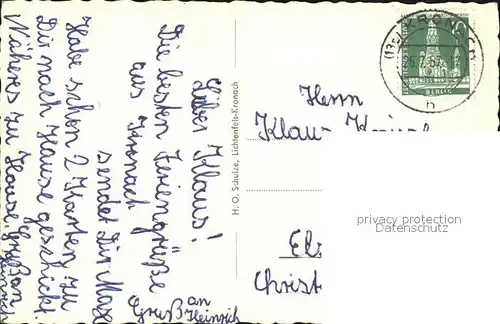 Lieber Klaus!
Die besten Feriengrüße
aus Kronach
sendet Dir Max
Habe schon 2 Karten zu
Dir nach Hause geschickt.
Näheres zu Hause, Gruß an
Heinrich
Gruß an
Heinrich
H. O. Schulze, Lichtenfels-Kronach
KRONACH
BERLIN
h
Herrn
Klaus
Christ
privacy protection
Datenschutz